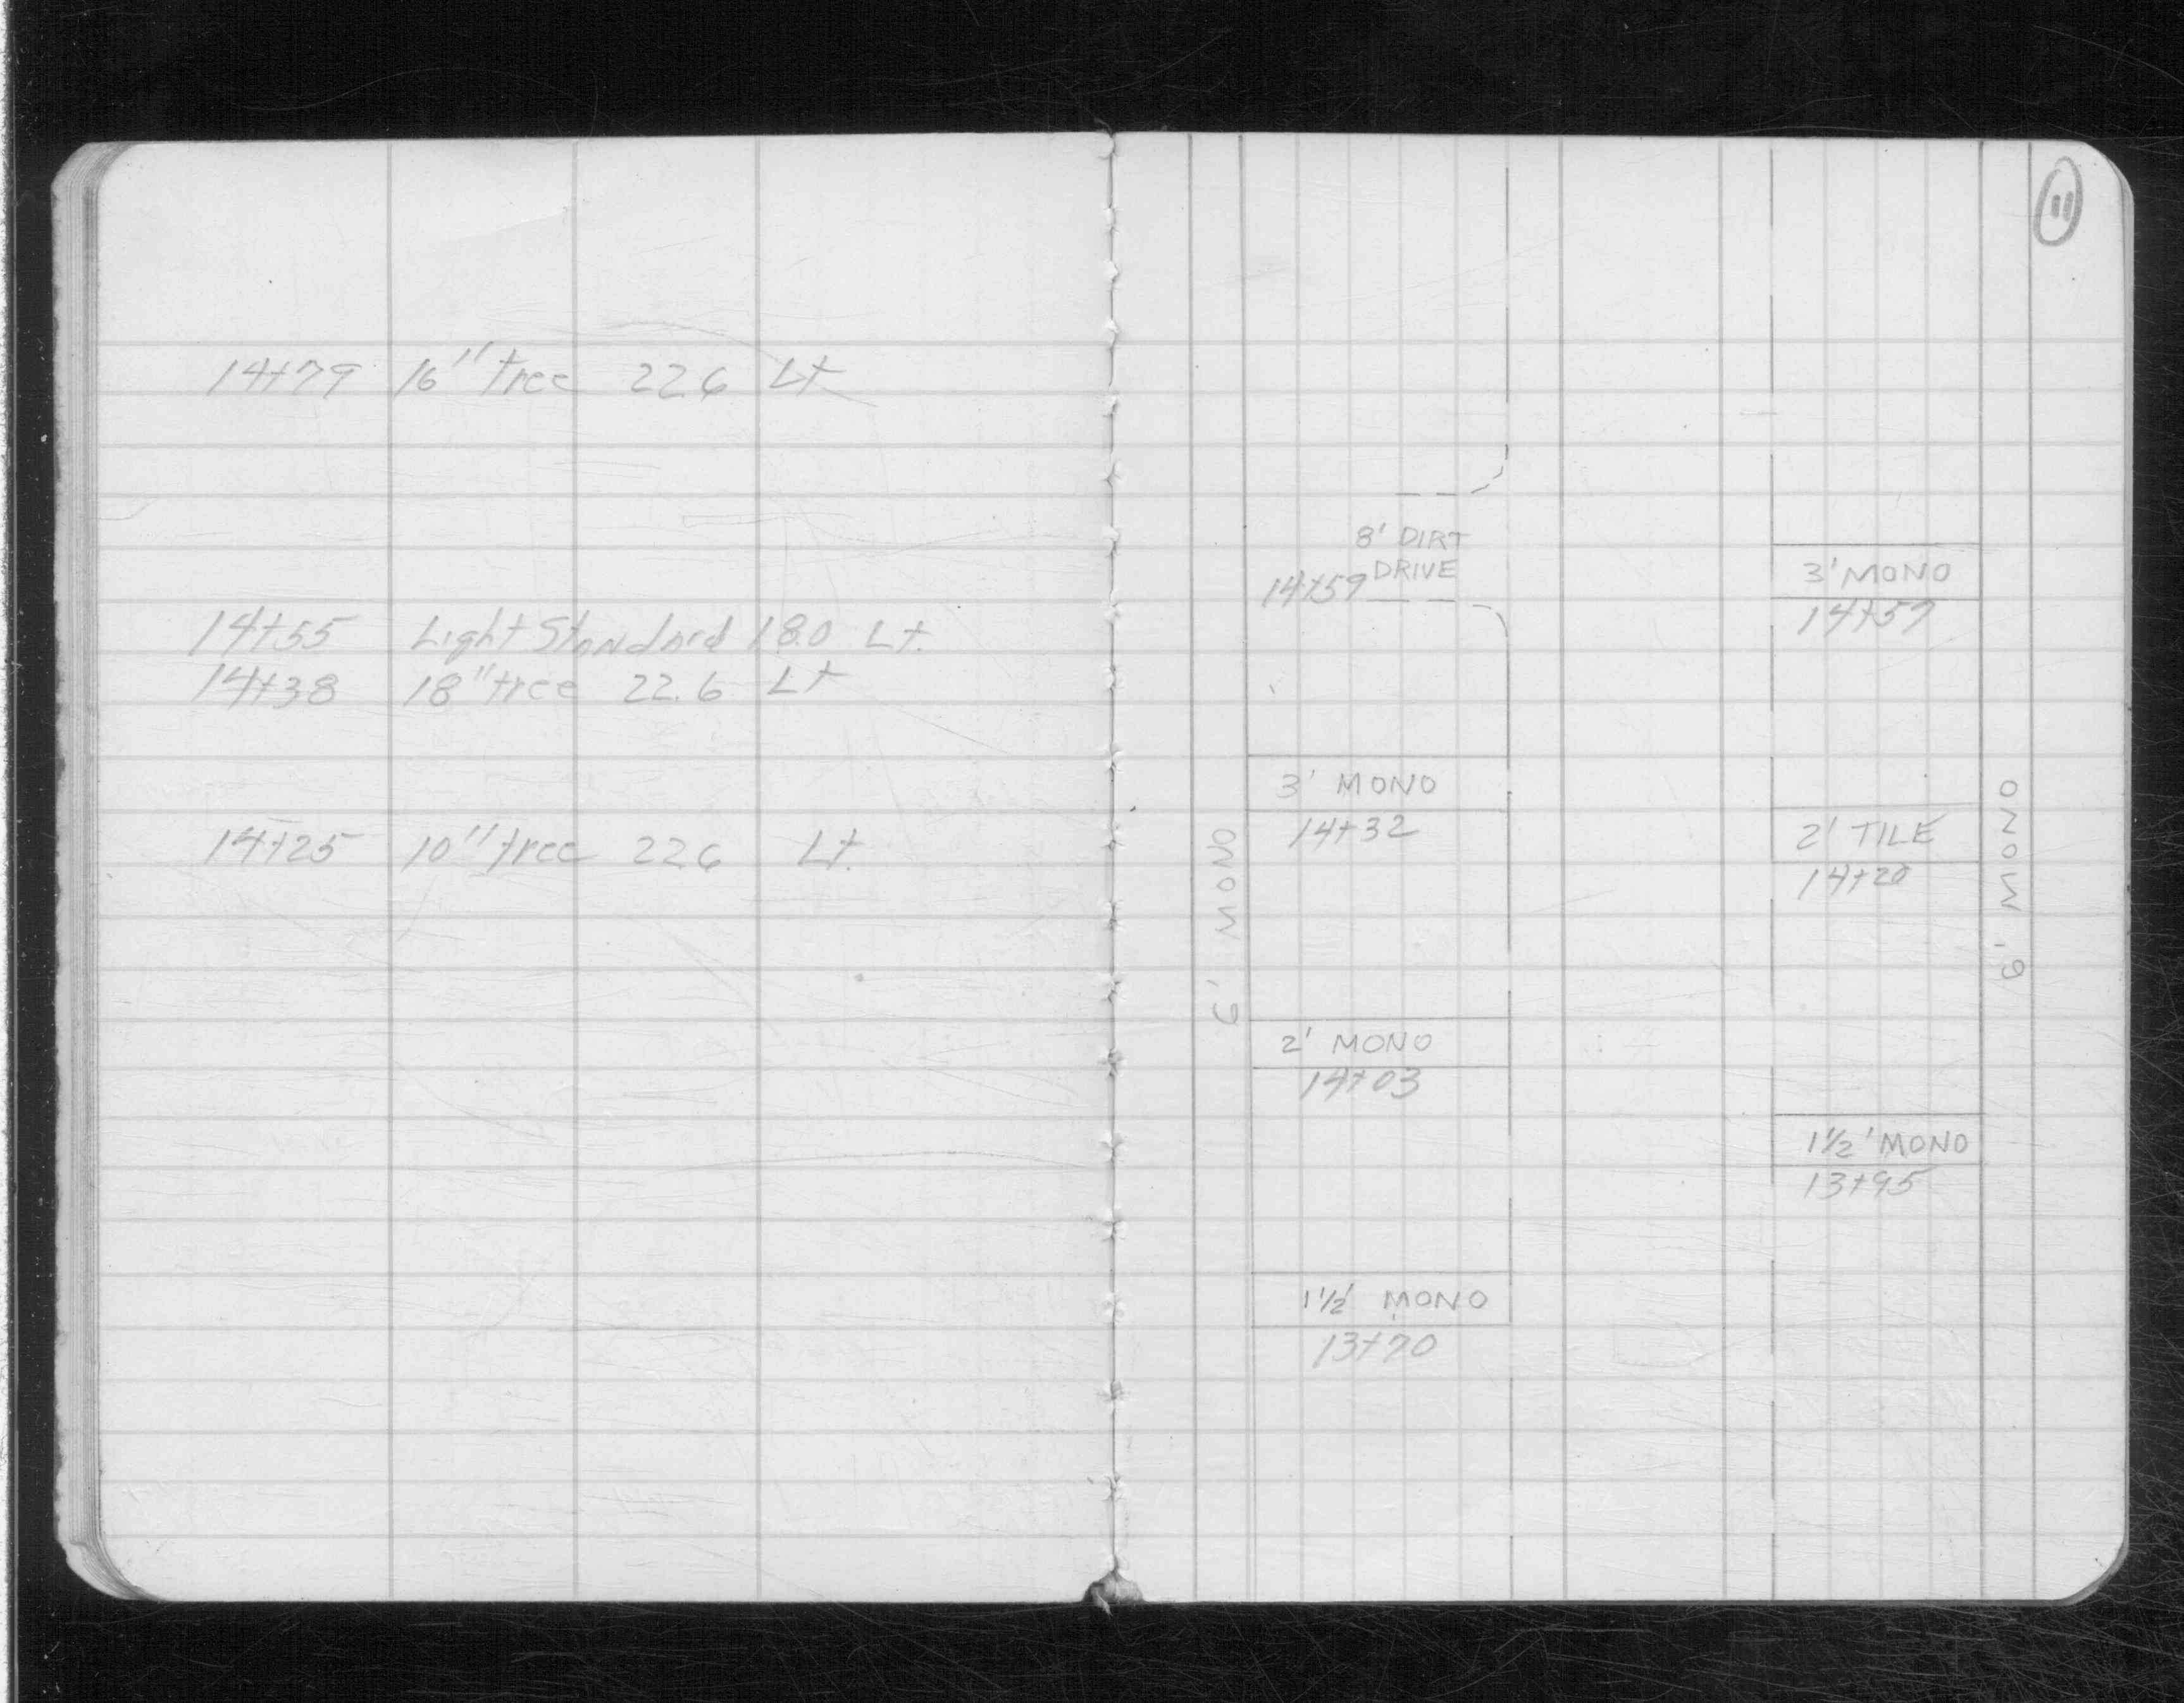 14+79 16" tree 22.6 Lt
14+55 Light Standard 18.0 Lt.
14+38 18" tree 22.6 Lt
14+25 10" tree 22.6 Lt.
11
8' DIRT
DRIVE
14+59
3' MONO
14+57
3' MONO
14+32
2' TILE
14+20
6' MONO
6' MONO
2' MONO
14+03
1½' MONO
13+95
1½' MONO
13+70